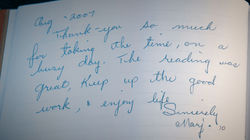 Aug - 2007
Thank-you so much
for taking the time, on a
busy day. The reading was
great, Keep up the good
work, & enjoy life
Sincerely
Marj.